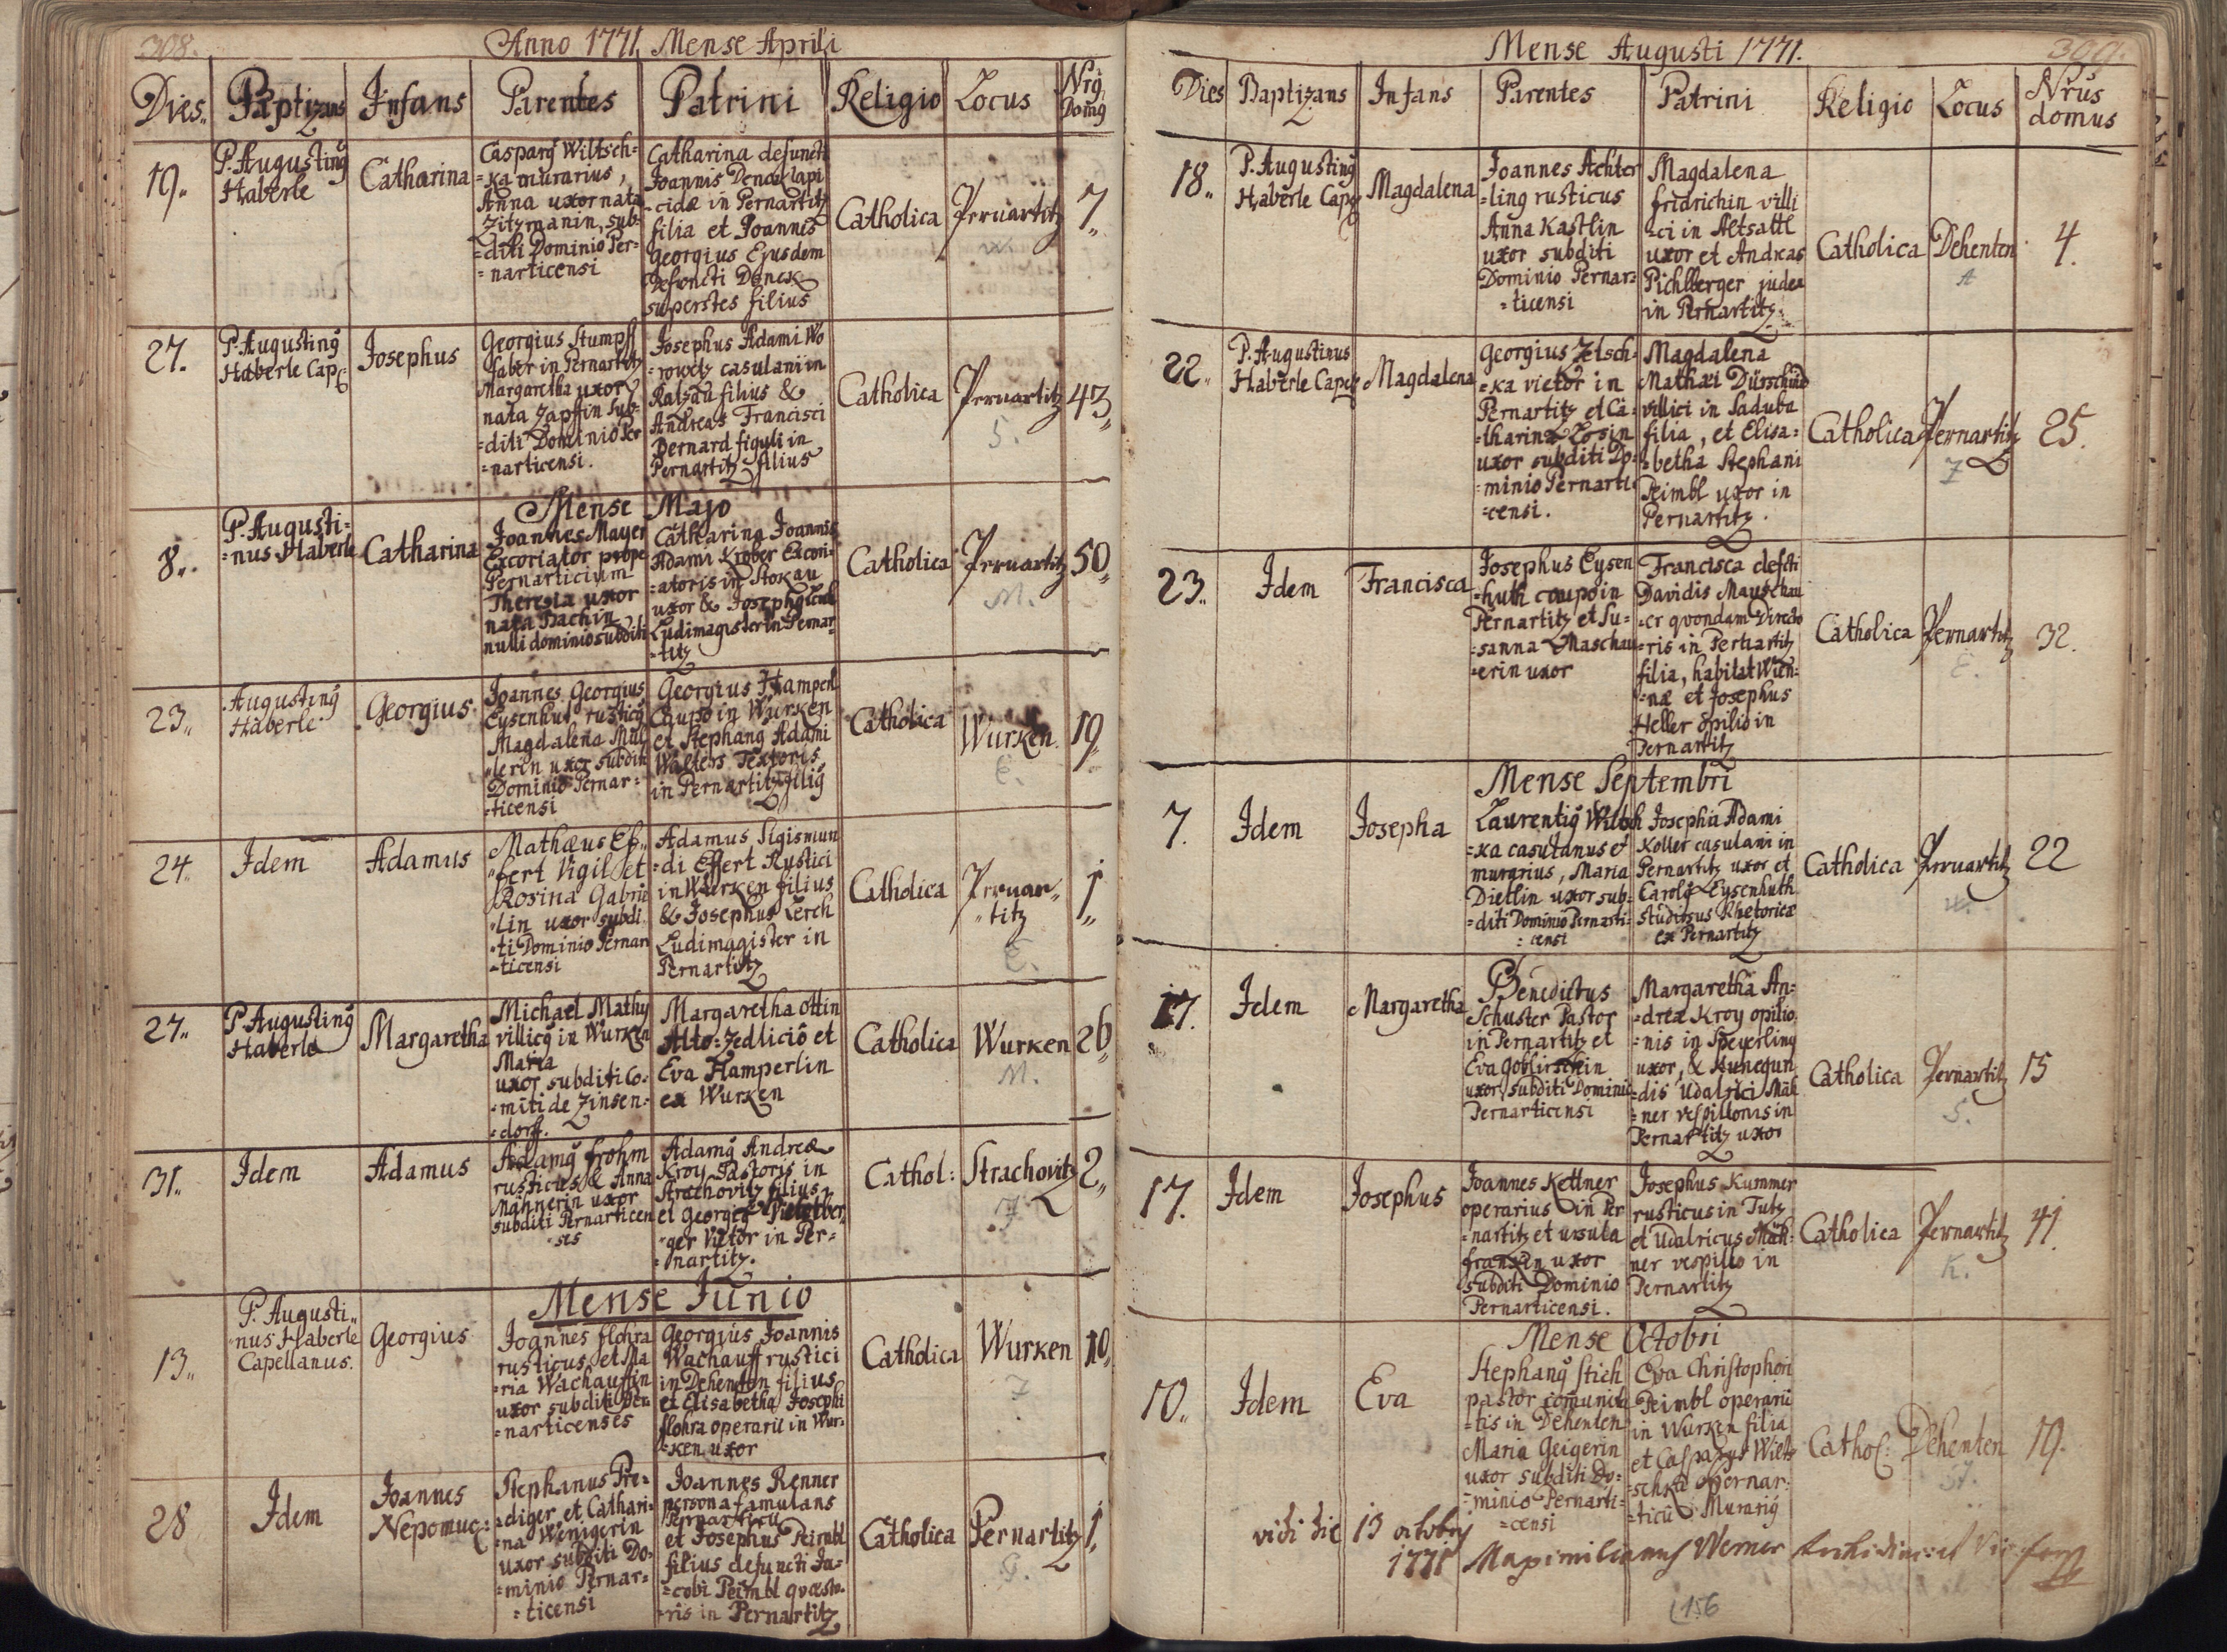 308.
Anno 1771. Mense Aprili
Dies. Baptizans Infans Parentes Patrini Religio Locus Nrꝰ Domꝰ
19.
P. Augustinꝰ
Haberle
Catharina
Casparꝰ Wiltsch=
=ka murarius,
Anna uxor nata
Zitzmanin, sub=
=diti Dominio Per=
=narticensi
Catharina defuncti
Joannis Denck lapi
=cidæ in Pernartitz
filia et Joannes
Georgius Ejusdem
Defuncti Denck
superstes filius
Catholica
Pernartitz
W.
7
27.
P. Augustinꝰ
Haberle Cap.
Josephus
Georgius Stumpff
faber in Pernartitz
Margaretha uxor
nata Zapfin sub=
=diti Dominio Per
=narticensi.
Josephus Adami Wo
=rowetz casulani in
Ratzau filius &
Andreas Francisci
Bernard figuli in
Pernartitz filius
Catholica
Pernartitz
S.
43
Mense Majo
8.
P. Augusti=
=nus Haberle
Catharina
Joannes Mayer
Excoriator prope
Pernarticium
Theresia uxor
nata Bachin
nulli dominio subditi
Catharina Joannis
Adami Krober Excori=
=atoris in Stokau
uxor & Josephꝰ Lerch
Ludimagister in Pernar=
=titz
Catholica
Pernartitz
M.
50
23.
Augustinꝰ
Haberle
Georgius
Joannes Georgius
Eysenhut rusticꝰ
Magdalena Mül
=lerin uxor subditi
Dominio Pernar=
=ticensi
Georgius Hamperl
Caupo in Wurken
et Stephanꝰ Adami
Walters Textoris
in Pernartitz filiꝰ
Catholica
Wurken
E.
19
24.
Idem
Adamus
Mathæus Ef=
=fert Vigil et
Rosina Gabrie
=lin uxor subdi
=ti Dominio Pernar
=ticensi
Adamus Sigismun
=di Effert Rustici
in Wurken filius
& Josephus Lerch
Ludimagister in
Pernartitz
Catholica
Pernar=
=titz
E.
1
27.
P. Augustinꝰ
Haberle
Margaretha
Michael Mathy
villicꝰ in Wurken
Maria
uxor subditi Co=
=miti de Zinsen=
=dorff.
Margaretha Ottin
Alto=Zedliciô et
Eva Hamperlin
ex Wurken
Catholica
Wurken
M.
26
31.
Idem
Adamus
Adamꝰ Frohm
rusticus & Anna
Mahnerin uxor
subditi Pernarticen
=ses
Adamꝰ Andreæ
Kroy Pastoris in
Strachovitz filius
et Georgiꝰ
=ger Vietor in Per=
=nartitz.
Cathol:
Strachovitz
F
2
Mense Junio
13.
P. Augusti=
=nus Haberle
Capellanus.
Georgius
Joannes Flohra
rusticus et Ma
=ria Wachauffin
uxor subditi Per
=narticenses
Georgius Joannis
Wachauff rustici
in Dehenten filius
et Elisabetha Josephi
Flohra operarii in Wur=
=ken uxor
Catholica
Wurken
F
10
28
Idem
Joannes
Nepomuc:
Stephanus Pre=
=diger et Cathari=
=na Wenigerin
uxor subditi Do=
=minio Pernar=
=ticensi
Joannes Renner
persona famulans
Pernarticii
et Josephus Peimbl
filius defuncti Ja=
=cobi Peimbl quæsto=
=ris in Pernartitz
Catholica
Pernartitz
1
Mense Augusti 1771.
309.
Dies Baptizans Infans Parentes Patrini Religio Locus Nrus domus
18.
P. Augustinꝰ
Haberle Cap
Magdalena
Joannes Achter
=ling rusticus
Anna Kastlin
uxor subditi
Dominio Pernar=
=ticensi
Magdalena
Fridrichin villi
=ci in Altsattl
uxor et Andreas
Pichlberger judex
in Pernartitz.
Catholica
Dehenten
A
4.
22.
P. Augustinus
Haberle Cap
Magdalena
Georgius Zetsch=
=ka vietor in
Pernartitz et Ca=
=tharina Losin
uxor subditi Do=
=minio Pernarti
=censi.
Magdalena
Mathæi Dürschmid
villici in Saduba
filia, et Elisa=
=betha Stephani
Peimbl uxor in
Pernartitz.
Catholica
Pernartitz
Z
25.
23.
Idem
Francisca
Josephus Eysen
=huth caupo in
Pernartitz et Su=
=sanna Maschau
=erin uxor
Francisca defcti
Davidis Mauschau
=er quondam Directo
=ris in Pernartitz
filia, habitat Vien=
=næ et Josephus
Heller opilio in
Pernartitz
Catholica
Pernartitz
E.
32.
Mense Septembri
7.
Idem
Josepha
Laurentiꝰ Wiltsch
=ka casulanus et
murarius, Maria
Dietlin uxor sub=
=diti Dominio Pernarti=
=censi
Josepha Adami
Koller casulani in
Pernartitz uxor et
Carolꝰ Eysenhuth
studiosus Rhetoricæ
ex Pernartitz
Catholica
Pernartitz
W.
22
17.
Idem
Margaretha
Benedictus
Schuster Pastor
in Pernartitz et
Eva Goblirschin
uxor, subditi Dominio
Pernarticensi
Margaretha An=
=dreæ Kroy opilio
=nis in Speyerling
uxor, & Kunegun
=dis Udalrici Mäh
=ner vespillonis in
Pernartitz uxor
Catholica
Pernartitz
S.
15
17.
Idem
Josephus
Joannes Kettner
operarius in Per
=nartitz et Ursula
Franzin uxor
subditi Dominio
Pernarticensi.
Josephus Kummer
rusticus in Tutz
et Udalricus Mäh=
ner vespillo in
Pernartitz
Catholica
Pernartitz
K.
41.
Mense Octobri
10.
Idem
Eva
Stephanꝰ Stich
pastor comunita
=tis in Dehenten
Maria Geigerin
uxor subditi Do=
=minio Pernarti=
=censi
Eva Christophori
Peimbl operarii
in Wurken filia
et Casparus Wielt
=schka Pernar=
=ticii Murariꝰ
Cathol:
Dehenten
St.
19.
vidi die 13 octobris
1771 Maximilianus Werner
156